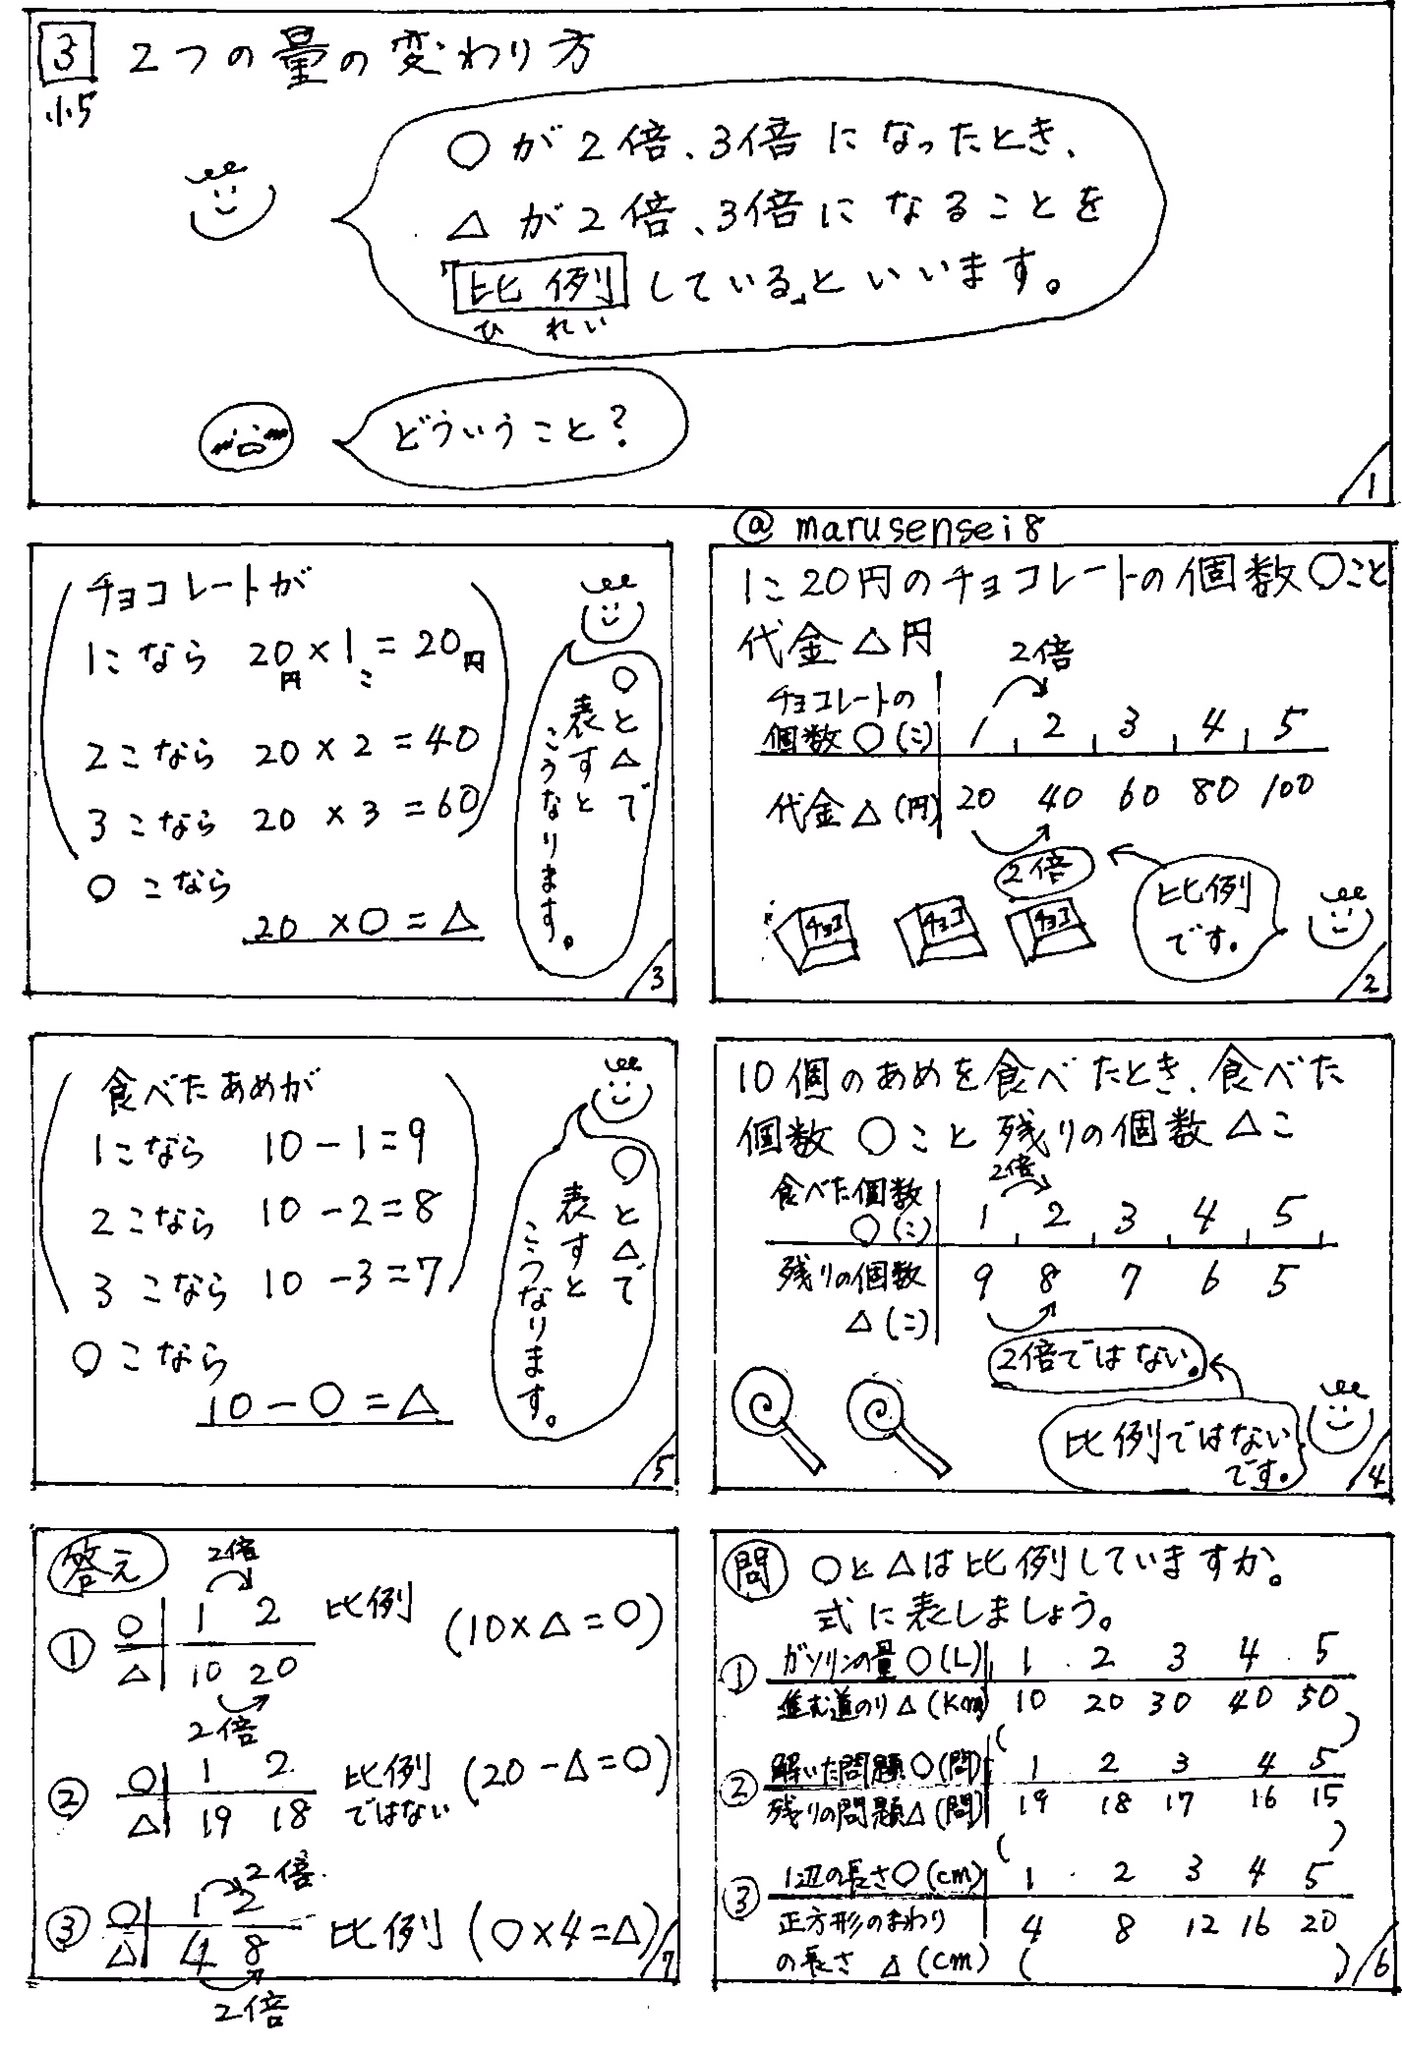 3 2つの量の変わり方
小5
○が2倍、3倍になったとき、
△が2倍、3倍になることを
「比例している」といいます。
ひれい
どういうこと?
1
@marusensei8
1こ20円のチョコレートの個数○こと
代金△円
2倍
チョコレートの
個数○(こ) 1 2 3 4 5
代金△(円) 20 40 60 80 100
2倍
比例
です。
チョコ チョコ チョコ
2
チョコレートが
1こなら 20×1=20円
円 こ
2こなら 20×2=40
3こなら 20×3=60
○こなら
20×○=△
○と△で
表すと
こうなります。
3
10個のあめを食べたとき、食べた
個数○こと残りの個数△こ
2倍
食べた個数
○(こ) 1 2 3 4 5
残りの個数 9 8 7 6 5
△(こ)
2倍ではない。
比例ではない
です。
4
食べたあめが
1こなら 10-1=9
2こなら 10-2=8
3こなら 10-3=7
○こなら
10-○=△
○と△で
表すと
こうなります。
5
問 ○と△は比例していますか。
式に表しましょう。
① ガソリンの量○(L) 1 2 3 4 5
進む道のり△(Km) 10 20 30 40 50
( )
② 解いた問題○(問) 1 2 3 4 5
残りの問題△(問) 19 18 17 16 15
( )
③ 1辺の長さ○(cm) 1 2 3 4 5
正方形のまわり 4 8 12 16 20
の長さ △(cm) ( )
6
答え
2倍
① ○ 1 2 比例 (10×△=○)
△ 10 20
2倍
② ○ 1 2 比例 (20-△=○)
△ 19 18 ではない
2倍
③ ○ 1 2 比例 (○×4=△)
△ 4 8
2倍
7